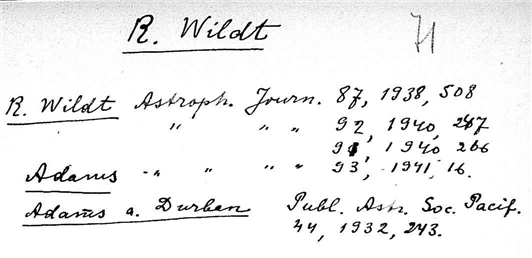 R. Wildt 71
R. Wildt Astroph. Journ. 87, 1938, 508
" " " 92, 1940, 247
91, 1940 266
Adams " " " 93, 1941, 16.
Adams a. Durham Publ. Astr. Soc. Pacif.
44, 1932, 243.